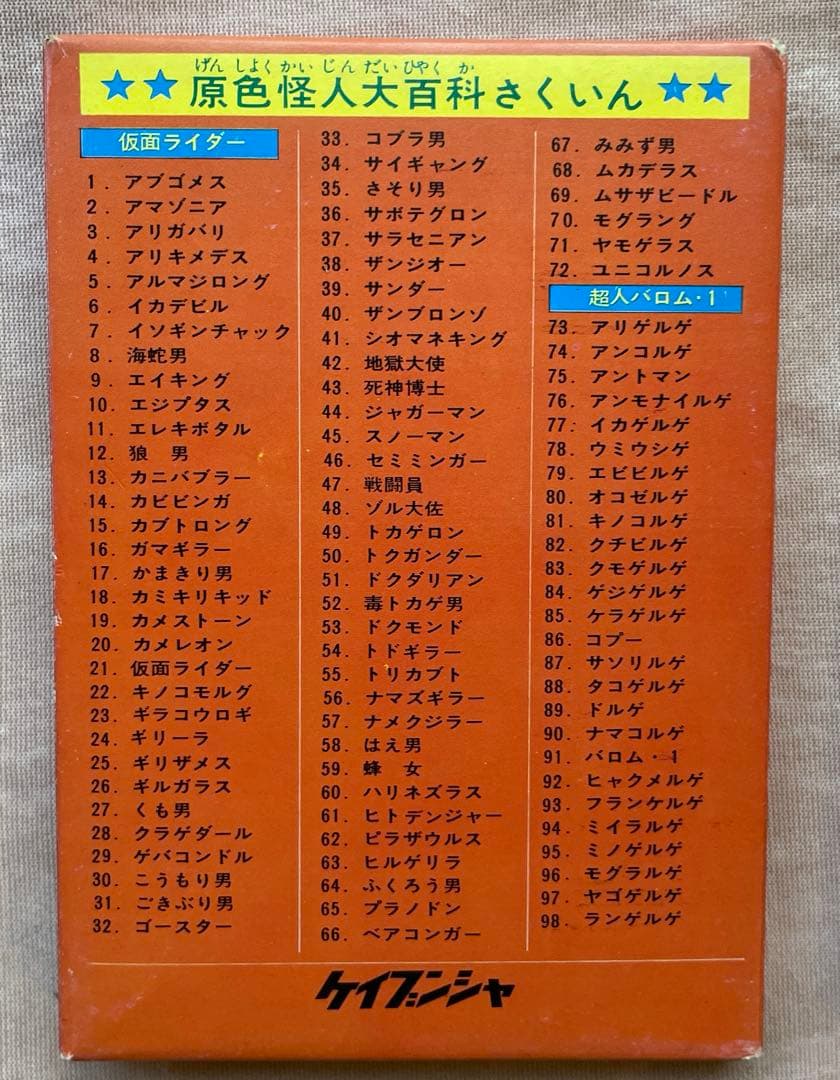 げんしよくかいじんだいひやくか
★★原色怪人大百科さくいん★★
仮面ライダー
1. アブゴメス
2. アマゾニア
3. アリガバリ
4. アリキメデス
5. アルマジロング
6. イカデビル
7. イソギンチャック
8. 海蛇男
9. エイキング
10. エジプタス
11. エレキボタル
12. 狼　男
13. カニバブラー
14. カビビンガ
15. カブトロング
16. ガマギラー
17. かまきり男
18. カミキリキッド
19. カメストーン
20. カメレオン
21. 仮面ライダー
22. キノコモルグ
23. ギラコウロギ
24. ギリーラ
25. ギリザメス
26. ギルガラス
27. くも男
28. クラゲダール
29. ゲバコンドル
30. こうもり男
31. ごきぶり男
32. ゴースター
33. コブラ男
34. サイギャング
35. さそり男
36. サボテグロン
37. サラセニアン
38. ザンジオー
39. サンダー
40. ザンブロンゾ
41. シオマネキング
42. 地獄大使
43. 死神博士
44. ジャガーマン
45. スノーマン
46. セミミンガー
47. 戦闘員
48. ゾル大佐
49. トカゲロン
50. トクガンダー
51. ドクダリアン
52. 毒トカゲ男
53. ドクモンド
54. トドギラー
55. トリカブト
56. ナマズギラー
57. ナメクジラー
58. はえ男
59. 蜂　女
60. ハリネズラス
61. ヒトデンジャー
62. ピラザウルス
63. ヒルゲリラ
64. ふくろう男
65. プラノドン
66. ベアコンガー
67. みみず男
68. ムカデラス
69. ムササビードル
70. モグラング
71. ヤモゲラス
72. ユニコルノス
超人バロム・1
73. アリゲルゲ
74. アンコルゲ
75. アントマン
76. アンモナイルゲ
77. イカゲルゲ
78. ウミウシゲ
79. エビビルゲ
80. オコゼルゲ
81. キノコルゲ
82. クチビルゲ
83. クモゲルゲ
84. ゲジゲルゲ
85. ケラゲルゲ
86. コプー
87. サソリルゲ
88. タコゲルゲ
89. ドルゲ
90. ナマコルゲ
91. バロム・1
92. ヒャクメルゲ
93. フランケルゲ
94. ミイラルゲ
95. ミノゲルゲ
96. モグラルゲ
97. ヤゴゲルゲ
98. ランゲルゲ
ケイブンシャ